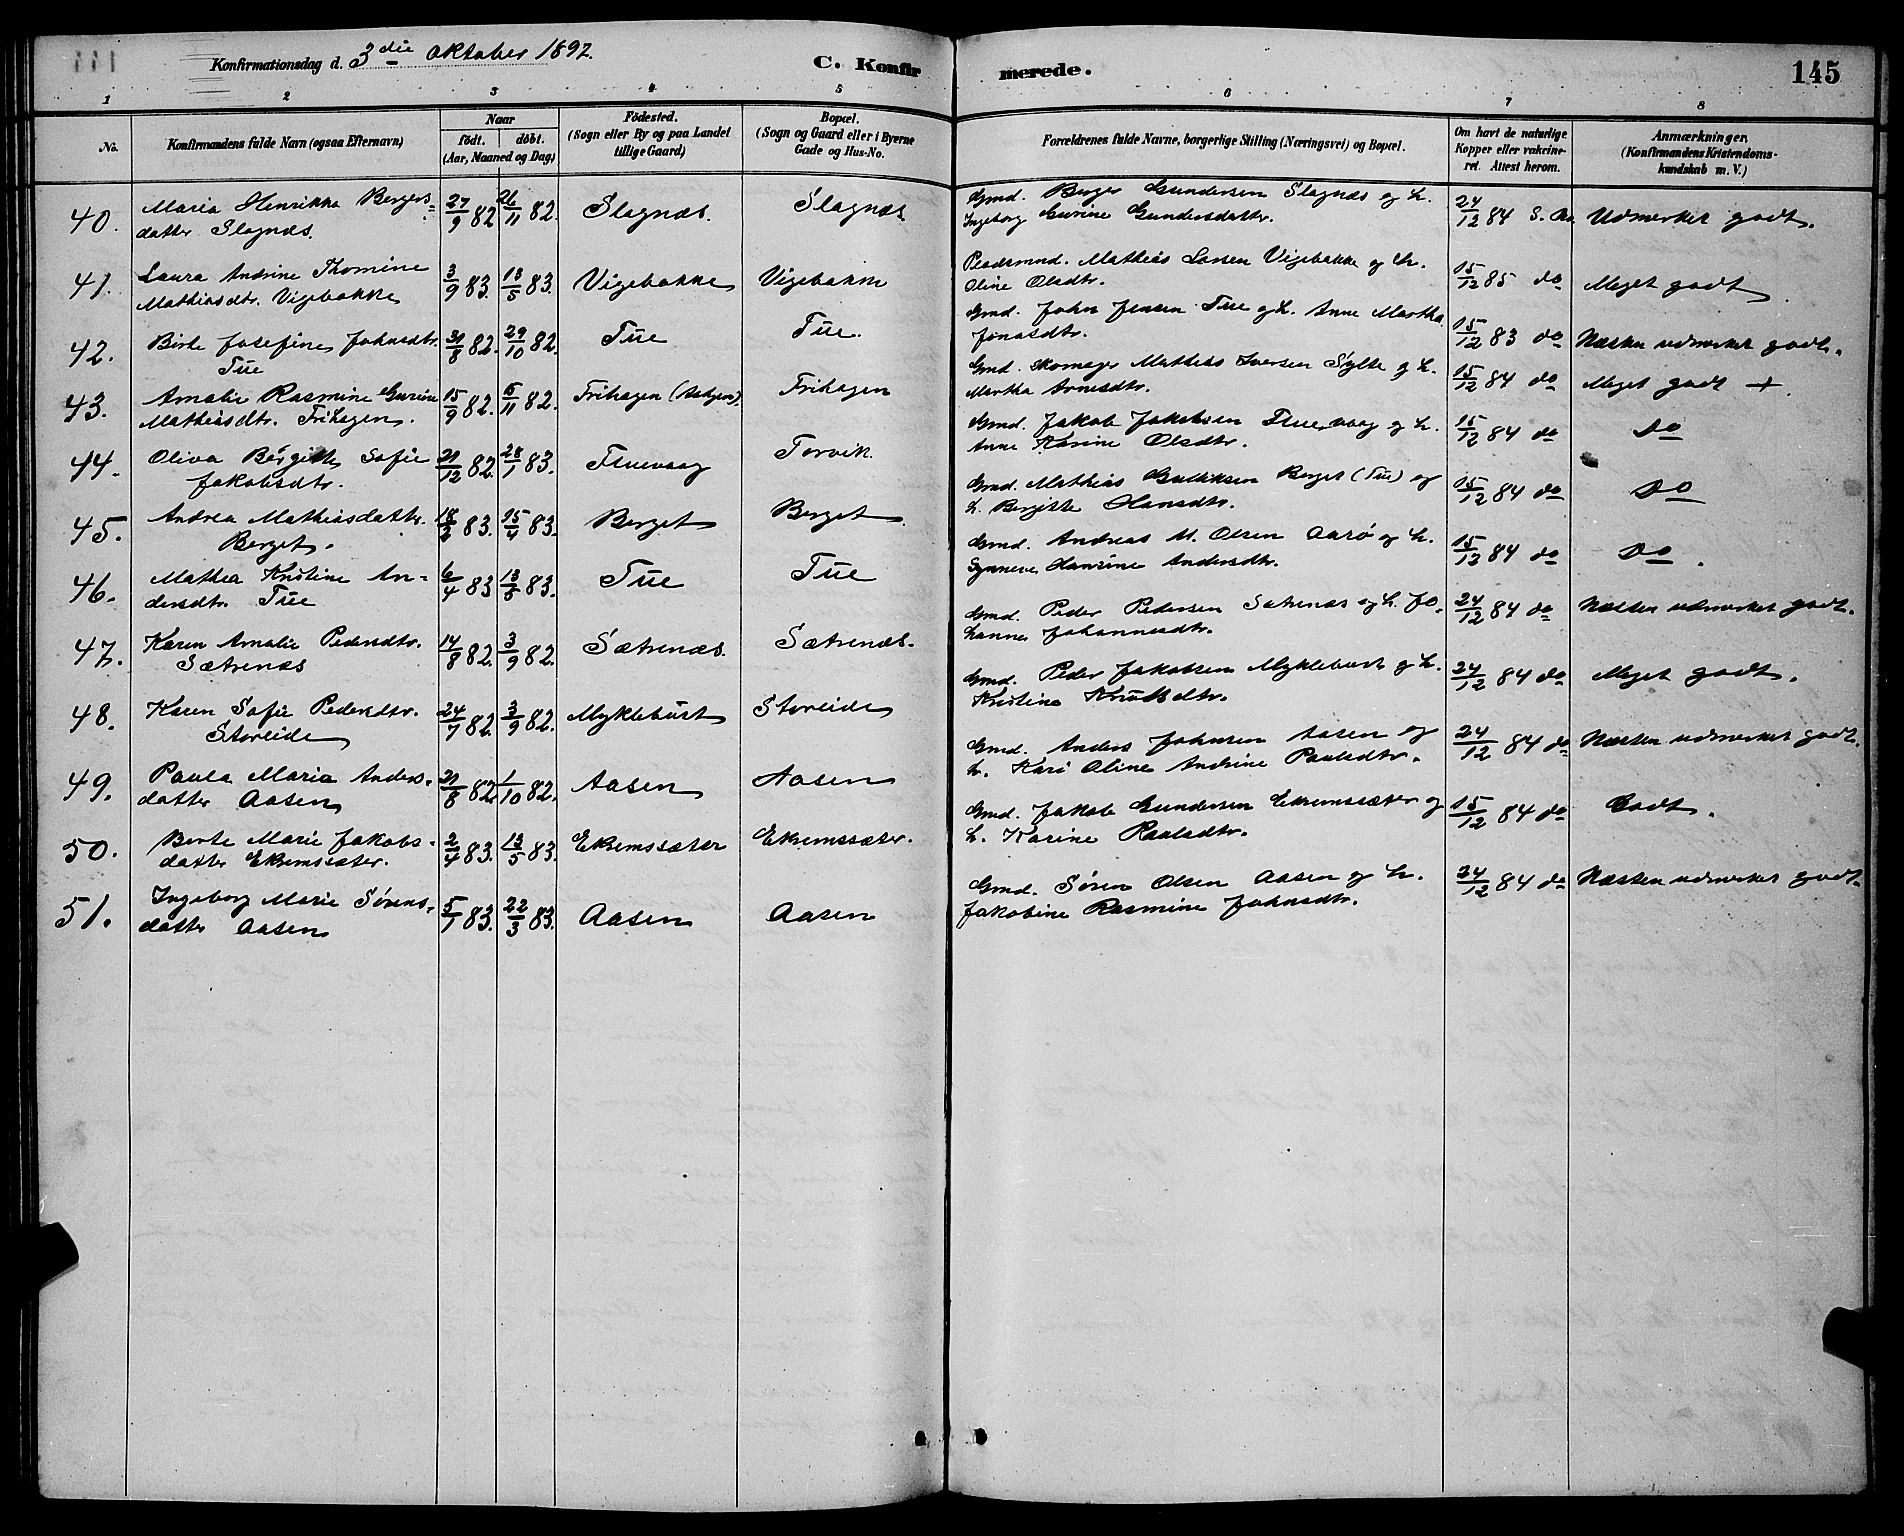 Konfirmationsdag d. 3die Oktober 1897.
C. Konfirmerede.
145
1 2 3 4 5 6 7 8
No.
Konfirmandens fulde Navn (ogsaa Efternavn)
Naar
födt. döbt.
(Aar, Maaned og Dag)
Födested.
(Sogn eller By og paa Landet
tillige Gaard)
Bopæl.
(Sogn og Gaard eller i Byerne
Gade og Hus-No.
Forældrenes fulde Navne, borgerlige Stilling (Næringsvei) og Bopæl.
Om havt de naturlige
Kopper eller vakcine-
ret. Attest herom.
Anmærkninger,
(Konfirmandens Kristendoms-
kundskab m. V.)
40. Maria Henrikka Bergers-
datter Slagnæs.
27/9 82 26/11 82. Slagnæs. Slagnæs
Gmd. Berger Gundersen Slagnæs og h.
Ingeborg Gurine Gundersdattr.
24/12 84 Udmerket godt.
41. Laura Andrine Thomine
Mathiasdtr. Vigebakke
3/9 83. 13/5 83. Vigebakke Vigebakke
Pladsmnd. Mathias Larsen Vigebakke og h.
Oline Olsdtr.
15/12 85 do Meget godt.
42. Birte Josefine Johnsdtr.
Tue
31/8 82. 29/10 82. Tue Tue.
Gmd. John Jensen Tue og h. Anne Martha
Jonasdtr.
15/12 83 do Næsten udmerket godt.
43. Amalie Rasmine Gurine
Mathiasdtr. Frihagen.
15/9 82. 5/11 82. Frihagen Frihagen
Gmd. Skomager Mathias Iversen Sylte og h.
Martha Arnesdtr.
15/12 84 do Meget godt +.
44. Oliva Bergitte Sofie
Jakobsdtr.
21/12 82. 28/1 83. Fluevaag Torvik.
Gmd. Jakob Jakobsen Fluevaag og h.
Anne Karine Olsdtr.
15/12 84 do Do
45. Andrea Mathiasdattr.
Berget.
18/2 83. 15/4 83. Berget Berget
Gmd. Mathias Gulliksen Berget (Tue) og
h. Bergitte Hansdtr.
15/12 84 do Do
46. Mathea Kristine An-
dersdtr. Tue
6/4 83 13/5 83. Tue Tue
Gmd. Andreas M. Olsen Aarø og h.
Synneve Hansine Andersdtr.
15/12 84 do Do.
47. Karen Amalie Pedersdtr.
Sætrenæs
14/8 82. 3/9 82. Sætrenæs. Sætrenæs.
Gmd. Peder Pedersen Sætrenæs og h. Jo-
hanne Johannesdtr.
24/12 84 do Næsten udmerket godt.
48. Karen Sofie Pedersdtr.
Storeide
24/7 82. 3/9 82. Myklebust Storeide
Gmd. Peder Jakobsen Myklebust og h.
Kristine Knutsdtr.
24/12 84 do Meget godt.
49. Paula Maria Anders-
datter Aasen
21/8 82 1/10 82. Aasen Aasen
Gmd. Anders Johnsen Aasen og
h. Kari Oline Andrine Paulsdtr.
24/12 84 do Næsten udmerket godt.
50. Berte Marie Jakobs-
datter Ekremssæter.
2/4 83. 13/5 83. Ekremssæter Ekremssæter.
Gmd. Jakob Gundersen Ekremssæter og
h. Karine Paulsdtr.
15/12 84 do Godt.
51. Ingeborg Marie Sørens-
datter Aasen
5/1 83. 22/3 83. Aasen Aasen
Gmd. Søren Olsen Aasen og h.
Jakobine Rasmine Johnsdtr.
24/12 84 do Næsten udmerket godt.